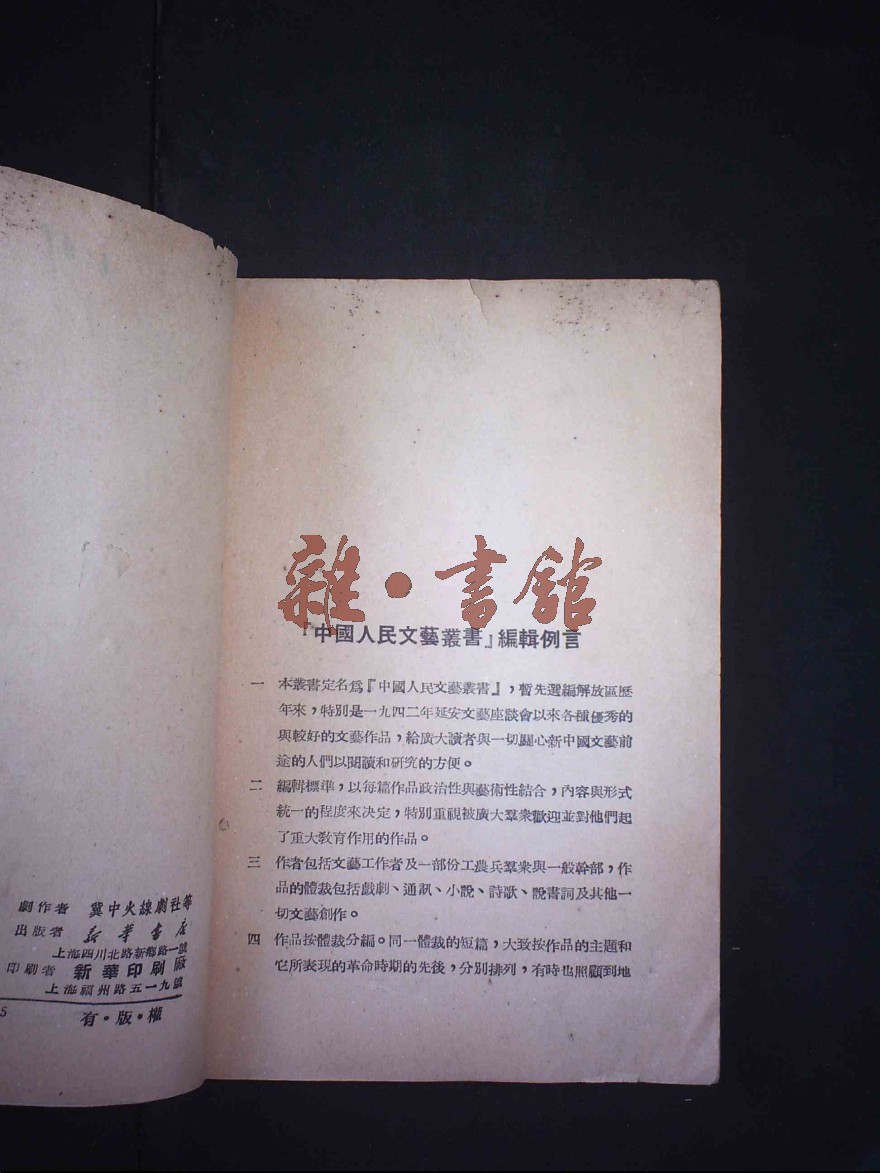 劇作者 冀中火線劇社等
出版者 新華書店
上海四川北路新鄉路一號
印刷者 新華印刷廠
上海福州路五一九號
5
有·版·權
雜·書館
『中國人民文藝叢書』編輯例言
一 本叢書定名爲『中國人民文藝叢書』，暫先選編解放區歷
年來，特別是一九四二年延安文藝座談會以來各種優秀的
與較好的文藝作品，給廣大讀者與一切關心新中國文藝前
途的人們以閱讀和研究的方便。
二 編輯標準，以每篇作品政治性與藝術性結合，內容與形式
統一的程度來决定，特別重視被廣大羣衆歡迎並對他們起
了重大敎育作用的作品。
三 作者包括文藝工作者及一部份工農兵羣衆與一般幹部，作
品的體裁包括戲劇、通訊、小說、詩歌、說書詞及其他一
切文藝創作。
四 作品按體裁分編。同一體裁的短篇，大致按作品的主題和
它所表現的革命時期的先後，分別排列，有時也照顧到地